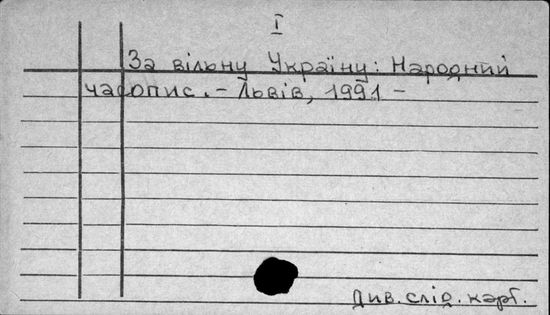 I
За вільну Україну: Народний
часопис. – Львів, 1991 –
Див. слід. карт.